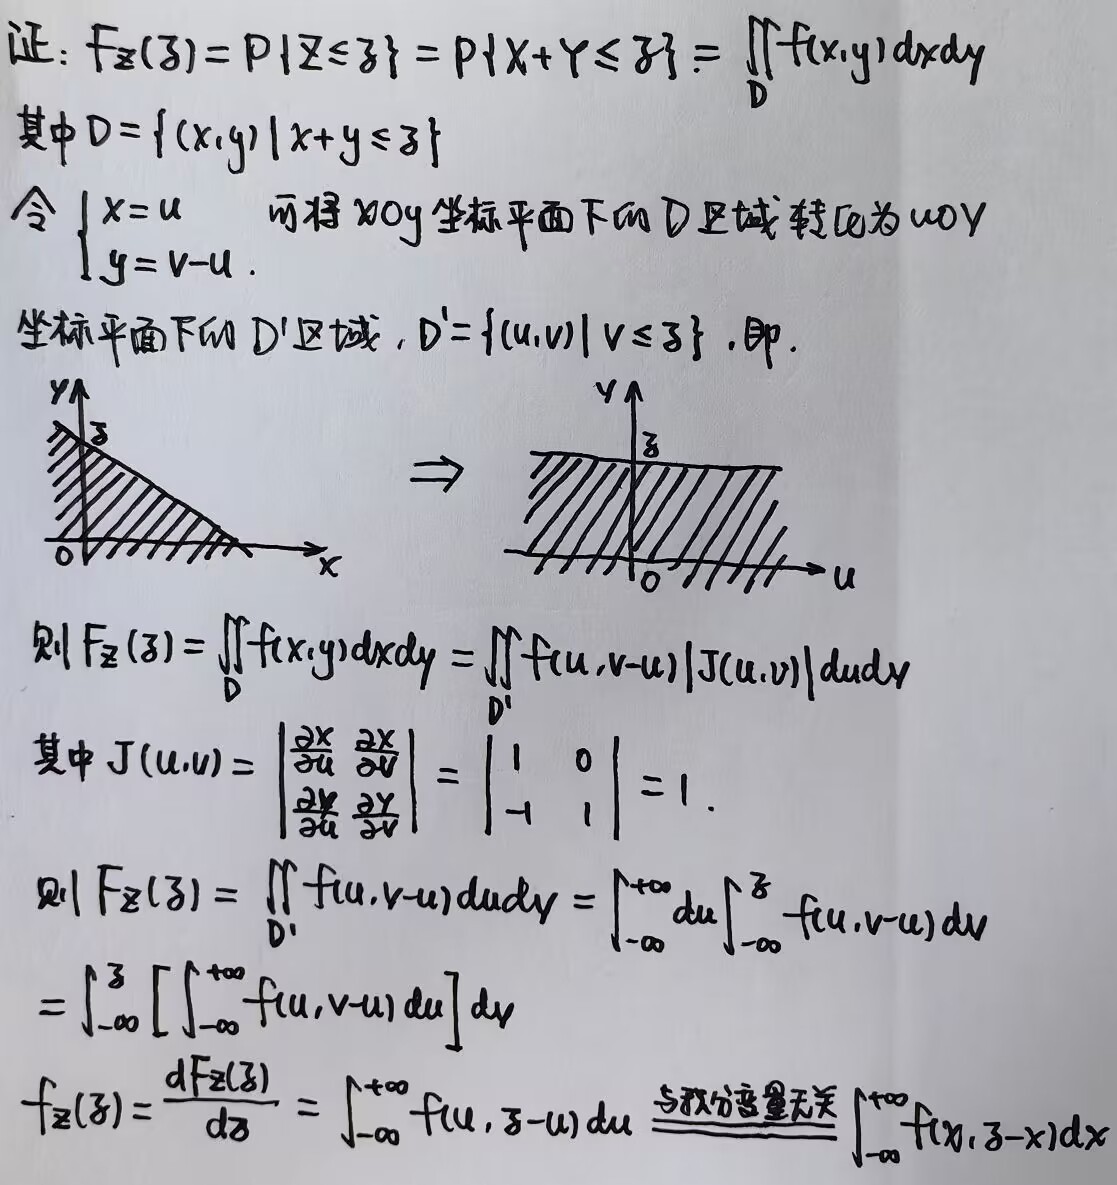 证: F_Z(z) = P{Z ≤ z} = P{X+Y ≤ z} = ∬_D f(x,y)dxdy
其中 D = {(x,y) | x+y ≤ z}
令 { x = u  可将 xoy 坐标平面下的 D 区域转化为 uov
y = v-u .
坐标平面下的 D' 区域, D' = {(u,v) | v ≤ z} . 即.
y z 0 x ⇒ v z 0 u
则 F_Z(z) = ∬_D f(x,y)dxdy = ∬_D' f(u,v-u)|J(u,v)|dudv
其中 J(u,v) = | ∂x/∂u ∂x/∂v ; ∂y/∂u ∂y/∂v | = | 1 0 ; -1 1 | = 1 .
则 F_Z(z) = ∬_D' f(u,v-u)dudv = ∫_{-∞}^{+∞} du ∫_{-∞}^{z} f(u,v-u)dv
= ∫_{-∞}^{z} [ ∫_{-∞}^{+∞} f(u,v-u)du ] dv
f_Z(z) = dF_Z(z)/dz = ∫_{-∞}^{+∞} f(u,z-u)du 与积分变量无关 ∫_{-∞}^{+∞} f(x,z-x)dx